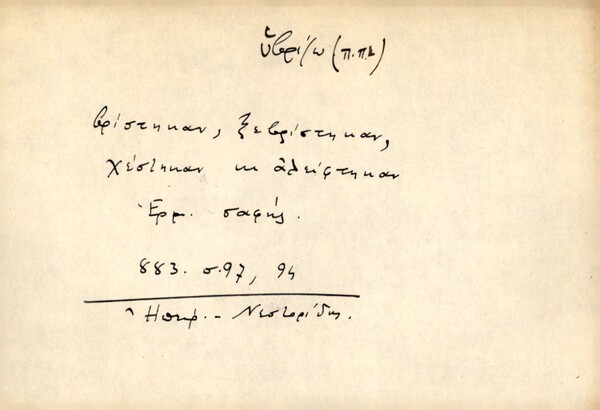 ὑβρίζω (π.πδ)
βρίστηκαν, ξεβρίστηκαν,
χέστηκαν κι ἀλείφτηκαν
Ἑρμ. σαφής.
883. σ.97, 94
Ἤπειρ. - Νεστορίδης.